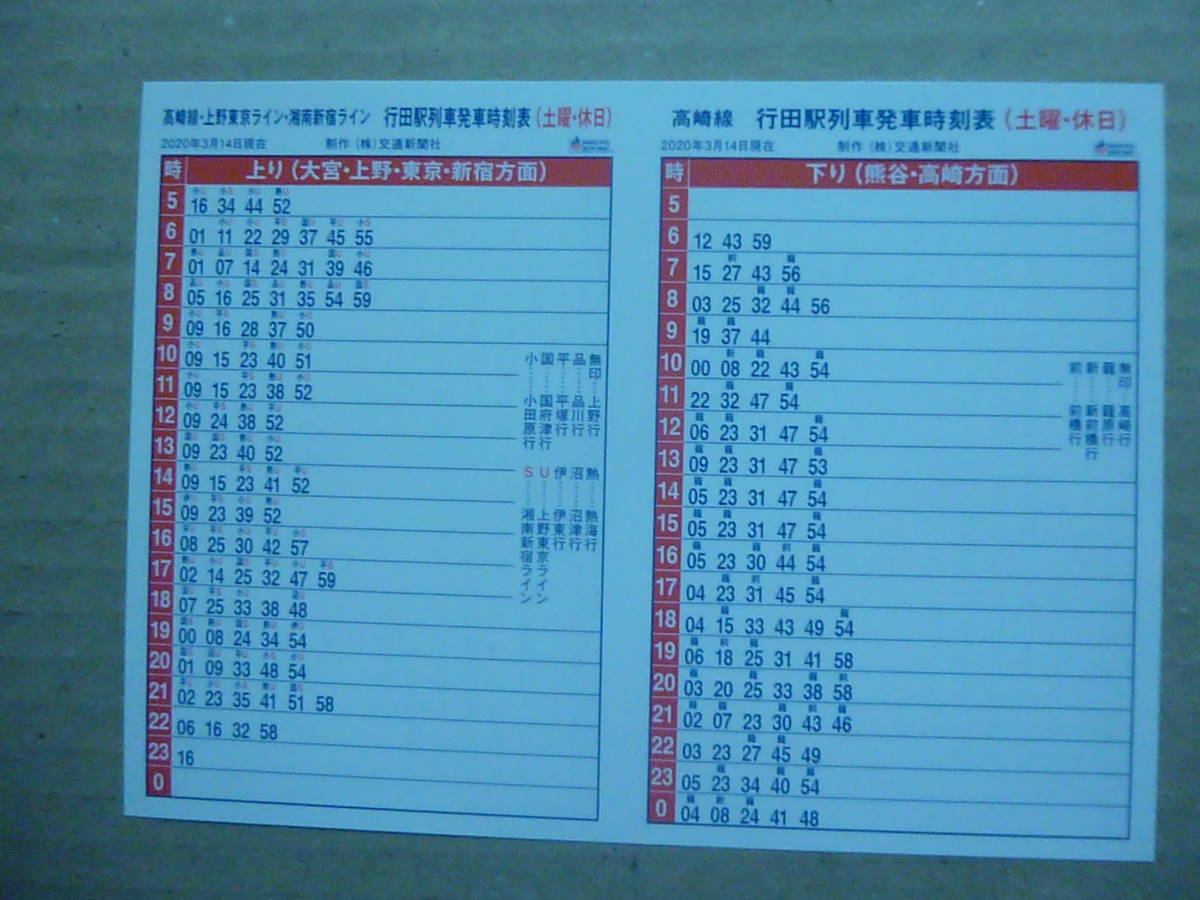 高崎線・上野東京ライン・湘南新宿ライン 行田駅列車発車時刻表(土曜・休日)
2020年3月14日現在 制作(株)交通新聞社
時 上り(大宮・上野・東京・新宿方面)
5 16 34 44 52
6 01 11 22 29 37 45 55
7 01 07 14 24 31 39 46
8 05 16 25 31 35 54 59
9 09 16 28 37 50
10 09 15 23 40 51
11 09 15 23 38 52
12 09 24 38 52
13 09 23 40 52
14 09 15 23 41 52
15 09 23 39 52
16 08 25 30 42 57
17 02 14 25 32 47 59
18 07 25 33 38 48
19 00 08 24 34 54
20 01 09 33 48 54
21 02 23 35 41 51 58
22 06 16 32 58
23 16
0
無印…上野行
品……品川行
平……平塚行
国……国府津行
小……小田原行
熱……熱海行
沼……沼津行
伊……伊東行
U……上野東京ライン
S……湘南新宿ライン
高崎線 行田駅列車発車時刻表(土曜・休日)
2020年3月14日現在 制作(株)交通新聞社
時 下り(熊谷・高崎方面)
5
6 12 43 59
7 15 27 43 56
8 03 25 32 44 56
9 19 37 44
10 00 08 22 43 54
11 22 32 47 54
12 06 23 31 47 54
13 09 23 31 47 53
14 05 23 31 47 54
15 05 23 31 47 54
16 05 23 30 44 54
17 04 23 31 45 54
18 04 15 33 43 49 54
19 06 18 25 31 41 58
20 03 20 25 33 38 58
21 02 07 23 30 43 46
22 03 23 27 45 49
23 05 23 34 40 54
0 04 08 24 41 48
無印…高崎行
籠……籠原行
新……新前橋行
前……前橋行